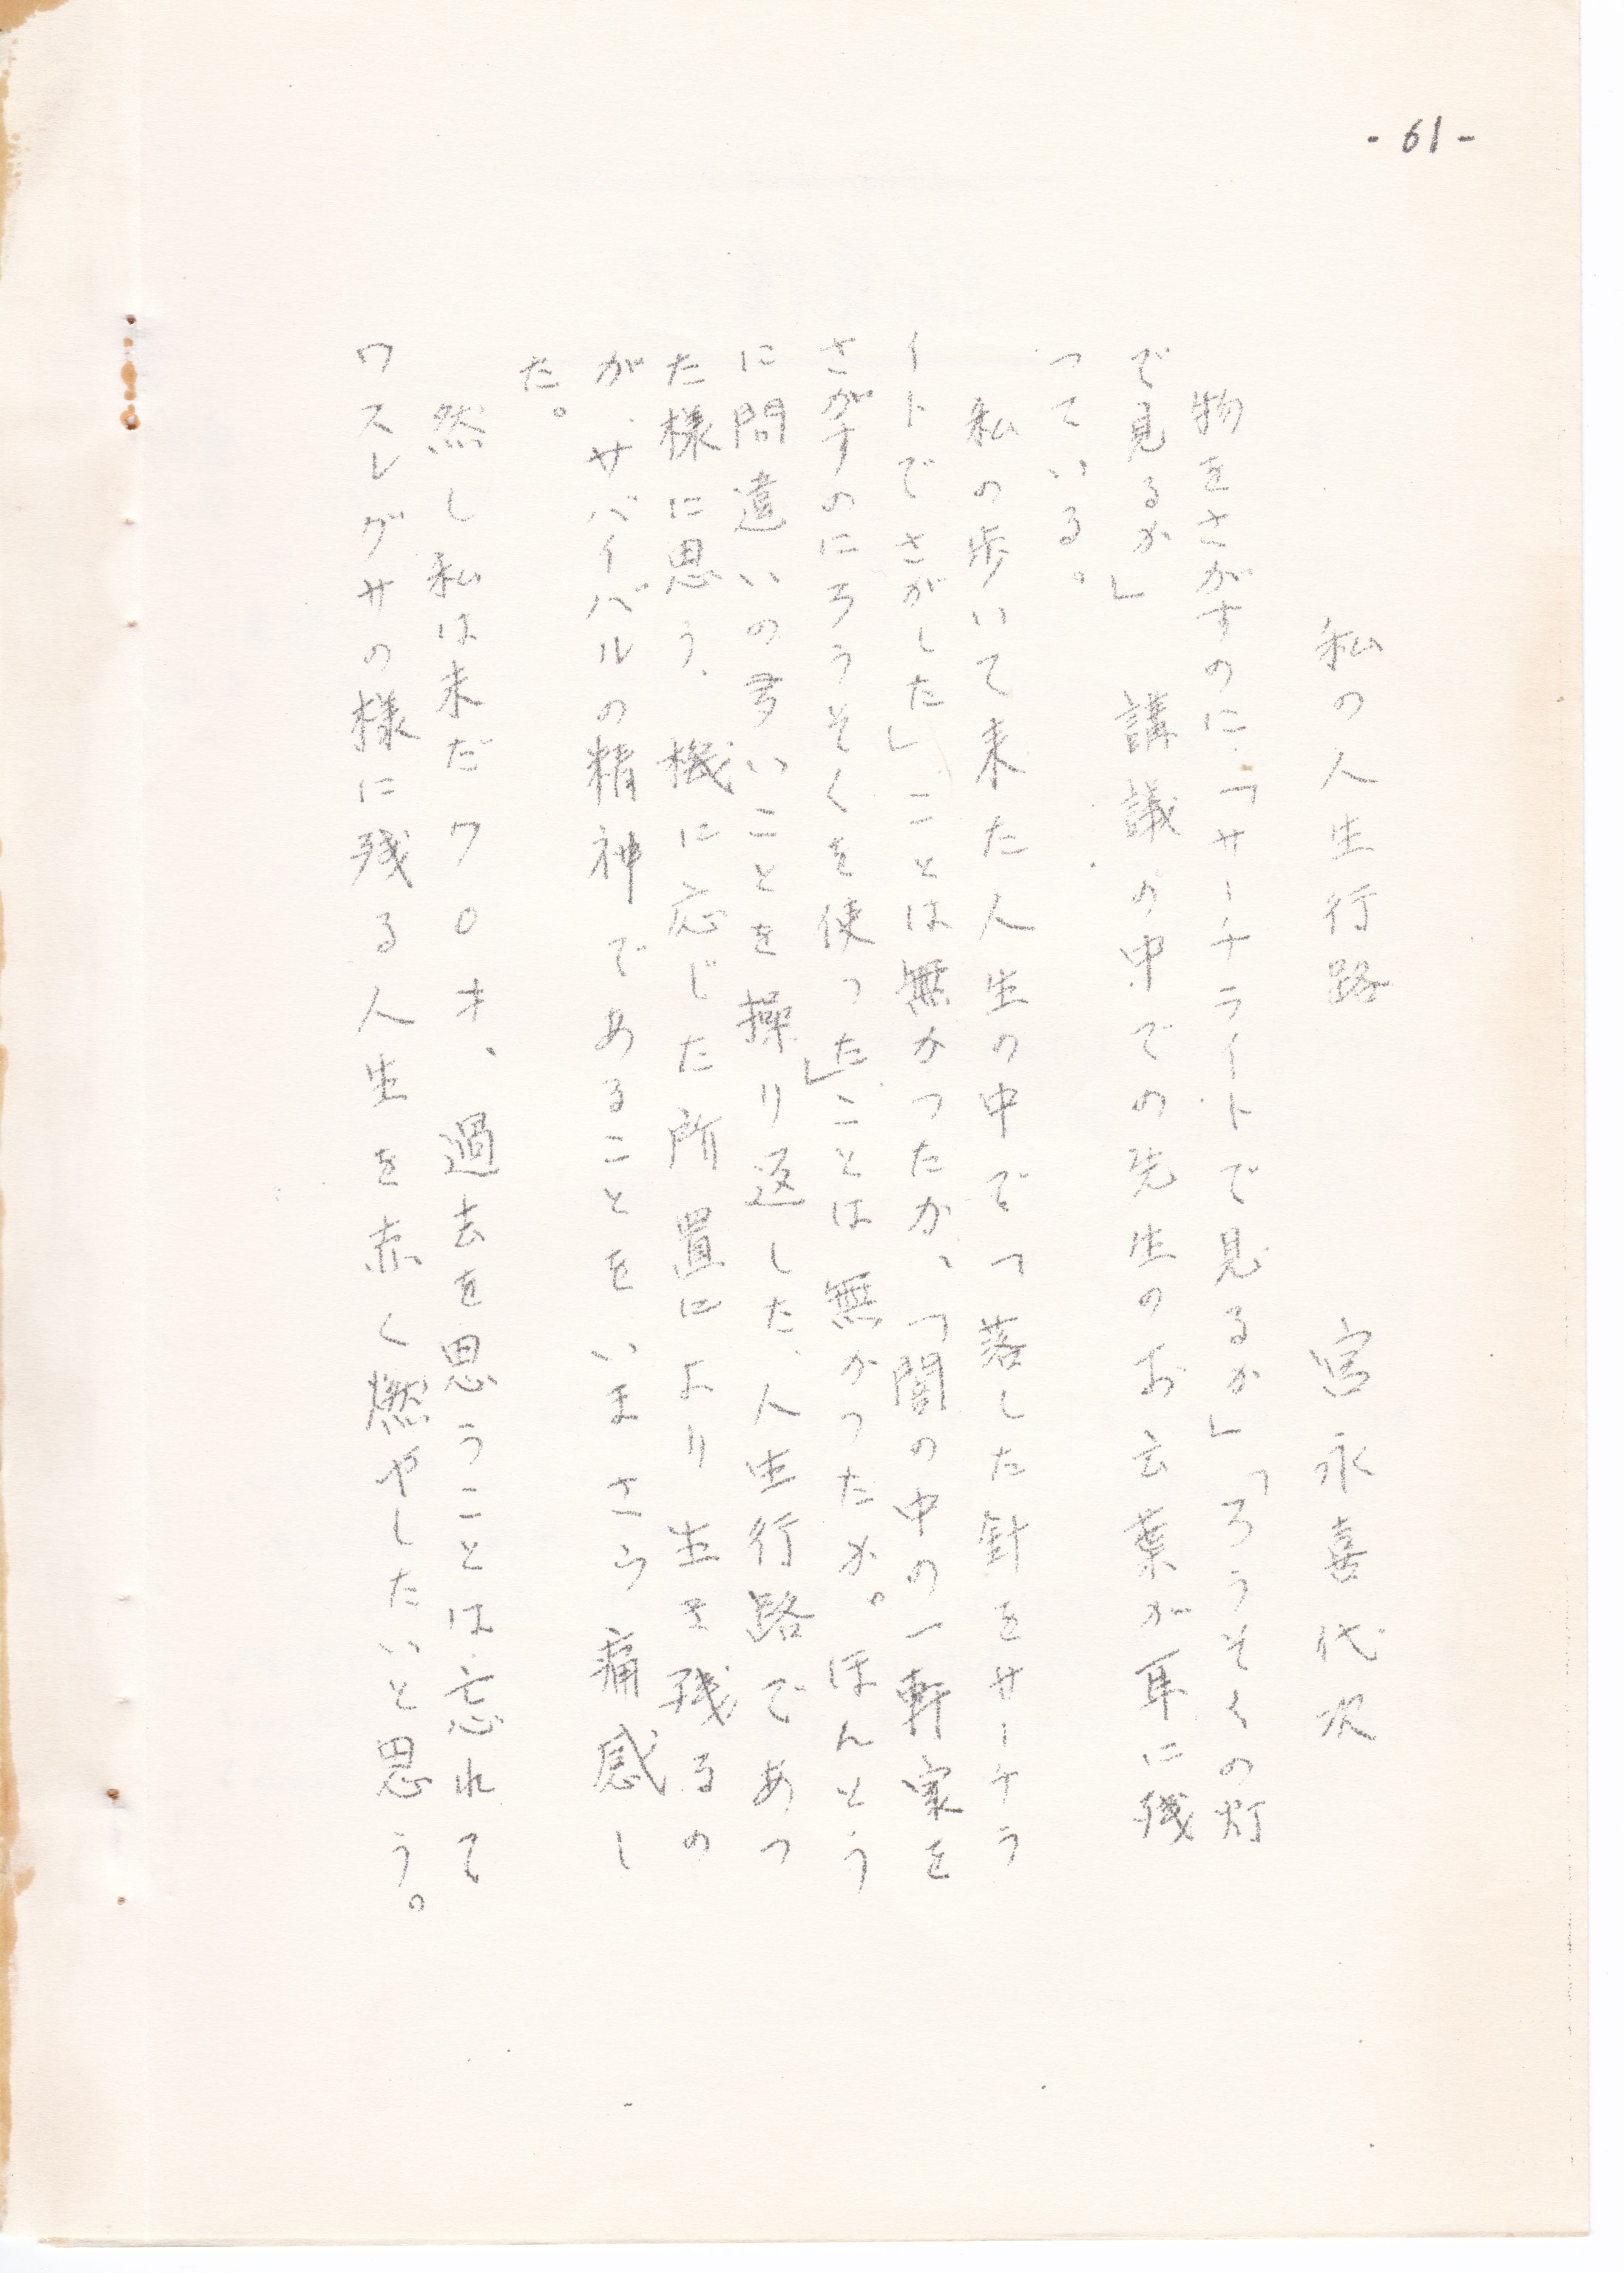 - 61 -
私の人生行路　宮永喜代次
物をさがすのに「サーチライトで見るか」「ろうそくの灯
で見るか」講議の中での先生のお言葉が耳に残
っている。
私の歩いて来た人生の中で「落した針をサーチラ
イトでさがした」ことは無かったか、「闇の中の一軒家を
さがすのにろうそくを使った」ことは無かったか。ほんとう
に間違いの多いことを操り返した、人生行路であっ
た様に思う、機に応じた所置により生き残るの
が、サバイバルの精神であることをいまさら痛感し
た。
然し私は未だ70才、過去を思うことは忘れて
ワスレグサの様に残る人生を赤く燃やしたいと思う。